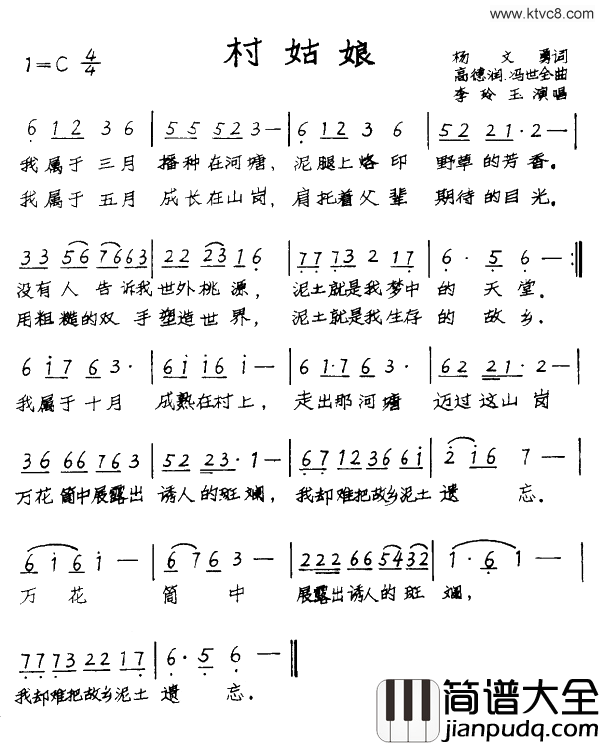 www.ktvc8.com
村姑娘
1=C 4/4
杨文勇词
高德润.冯世全曲
李玲玉演唱
6 12 3 6 | 55 55 23 — | 6 12 3 6 | 52 22 1· 2 — |
我属于三月 播种在河塘, 泥腿上烙印 野草的芳香。
我属于五月 成长在山岗, 肩托着父辈 期待的目光。
33 567663 | 22 2316 | 77 73 2 17 | 6· 5 6 — :||
没有人告诉我世外桃源, 泥土就是我梦中的天堂。
用粗糙的双手塑造世界, 泥土就是我生存的故乡。
6 17 63· | 61 161 — | 61·763· | 62 221·2 — |
我属于十月 成熟在村上, 走出那河塘 迈过这山岗
36 66 763 | 52 23·1 — | 67123661 | 2 16 7 — |
万花筒中展露出诱人的斑斓, 我却难把故乡泥土遗忘。
6161 — | 6763 — | 222665432 | 1·61 — |
万花筒中 展露出诱人的斑斓,
7773 2217 | 6·56 — ||
我却难把故乡泥土遗忘。
简谱大全
jianpudq.com